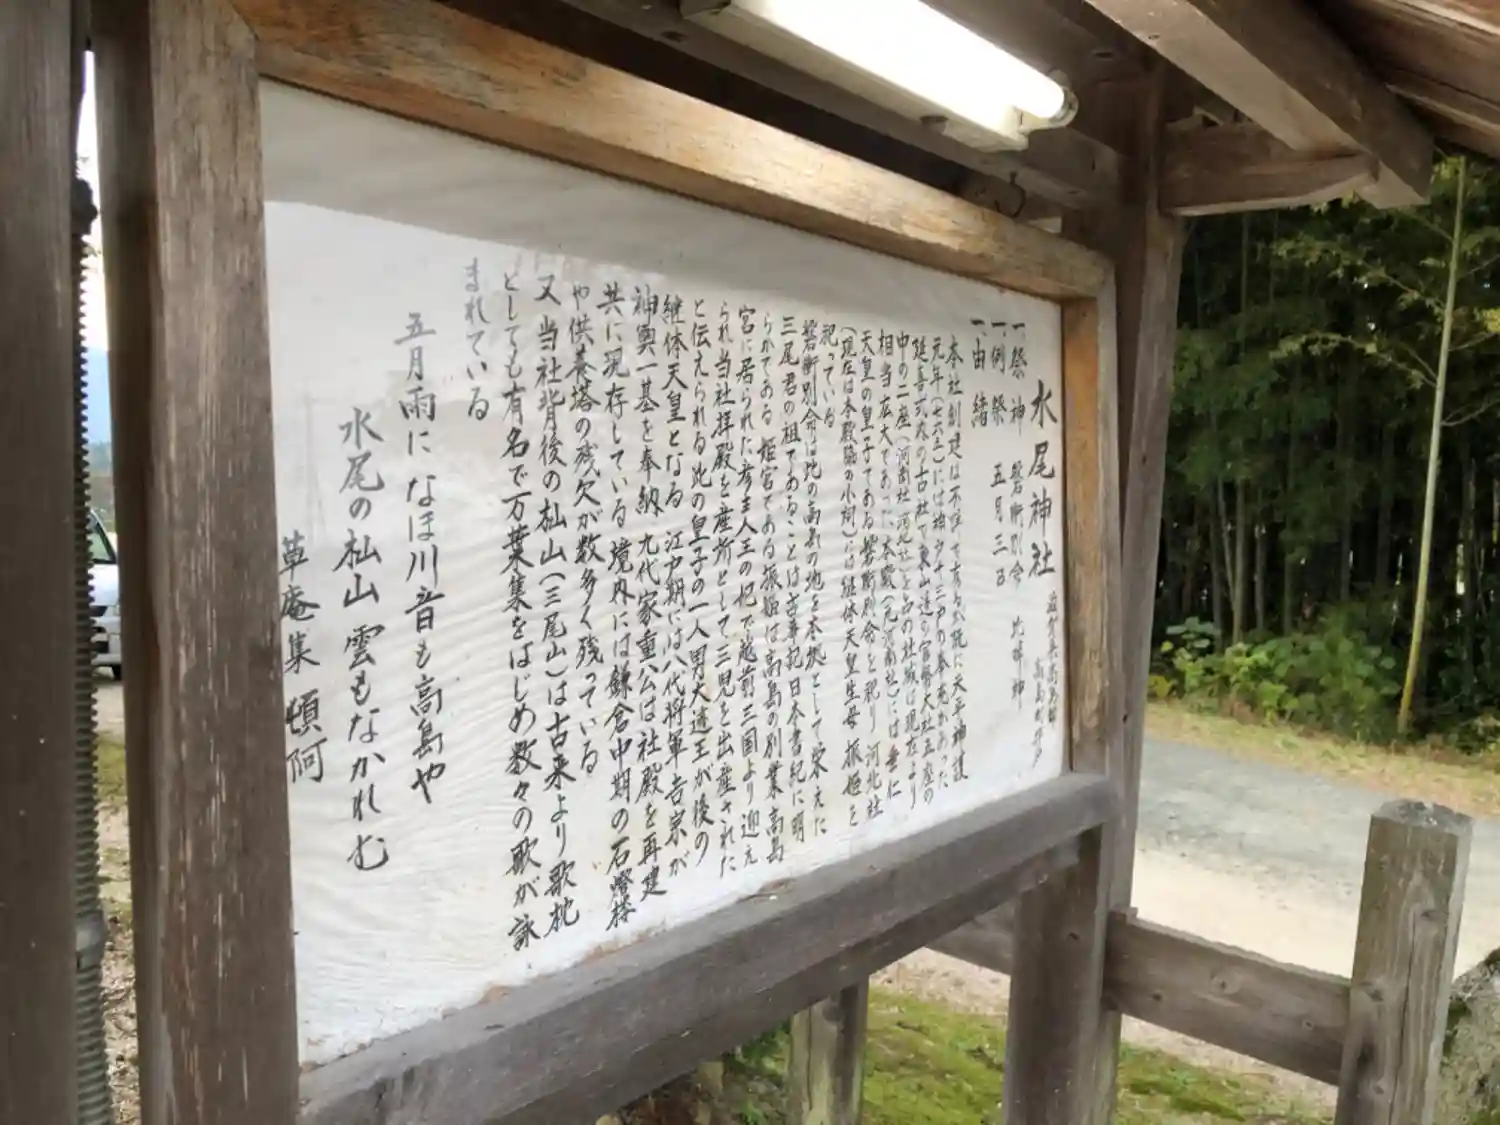 水尾神社 滋賀県高島郡高島町拝戸
一、祭神 磐衝別命 比咩神
一、例祭 五月三日
一、由緒
本社創建は不詳であるが既に天平神護
元年(七六五)には神戸十三戸の奉充があった
延喜式内の古社で東山道の官幣大社五座の
中の二座(河南社、河北社)を占め社域は現在より
相当広大であった 本殿(元河南社)には垂仁
天皇の皇子である磐衝別命を祀り 河北社
(現在は本殿脇の小祠)には継体天皇生母 振姫を
祀っている
磐衝別命は比の高島の地を本拠として栄えた
三尾君の祖であることは古事記日本書紀に明
られてある 姫宮である振姫は高島の別業 高島
宮に居られた彦主人王の妃で越前三国より迎え
られ当社拝殿を産所として三児を出産された
と伝えられる此の皇子の一人男大迹王が後の
継体天皇となる 江戸期には八代将軍吉宗が
神輿一基を奉納 九代家重公は社殿を再建
共に現存している 境内には鎌倉中期の石燈楼
や供養塔の残欠が数多く残っている
又 当社背後の杣山(三尾山)は古来より歌枕
としても有名で万葉集をはじめ数々の歌が詠
まれている
五月雨に なほ川音も高島や
水尾の杣山 雲もなかれむ
草庵集 頓阿